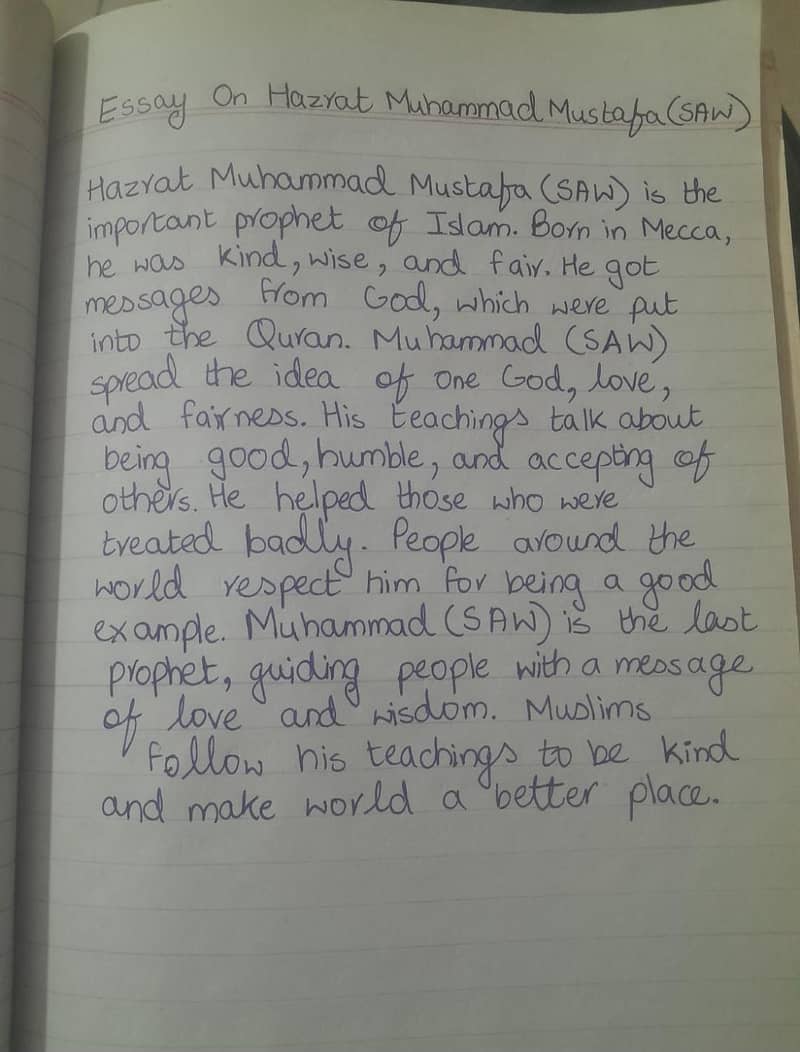 Essay On Hazrat Muhammad Mustafa (SAW)
Hazrat Muhammad Mustafa (SAW) is the
important prophet of Islam. Born in Mecca,
he was kind, wise, and fair. He got
messages from God, which were put
into the Quran. Muhammad (SAW)
spread the idea of one God, love,
and fairness. His teachings talk about
being good, humble, and accepting of
others. He helped those who were
treated badly. People around the
world respect him for being a good
example. Muhammad (SAW) is the last
prophet, guiding people with a message
of love and wisdom. Muslims
follow his teachings to be kind
and make world a better place.